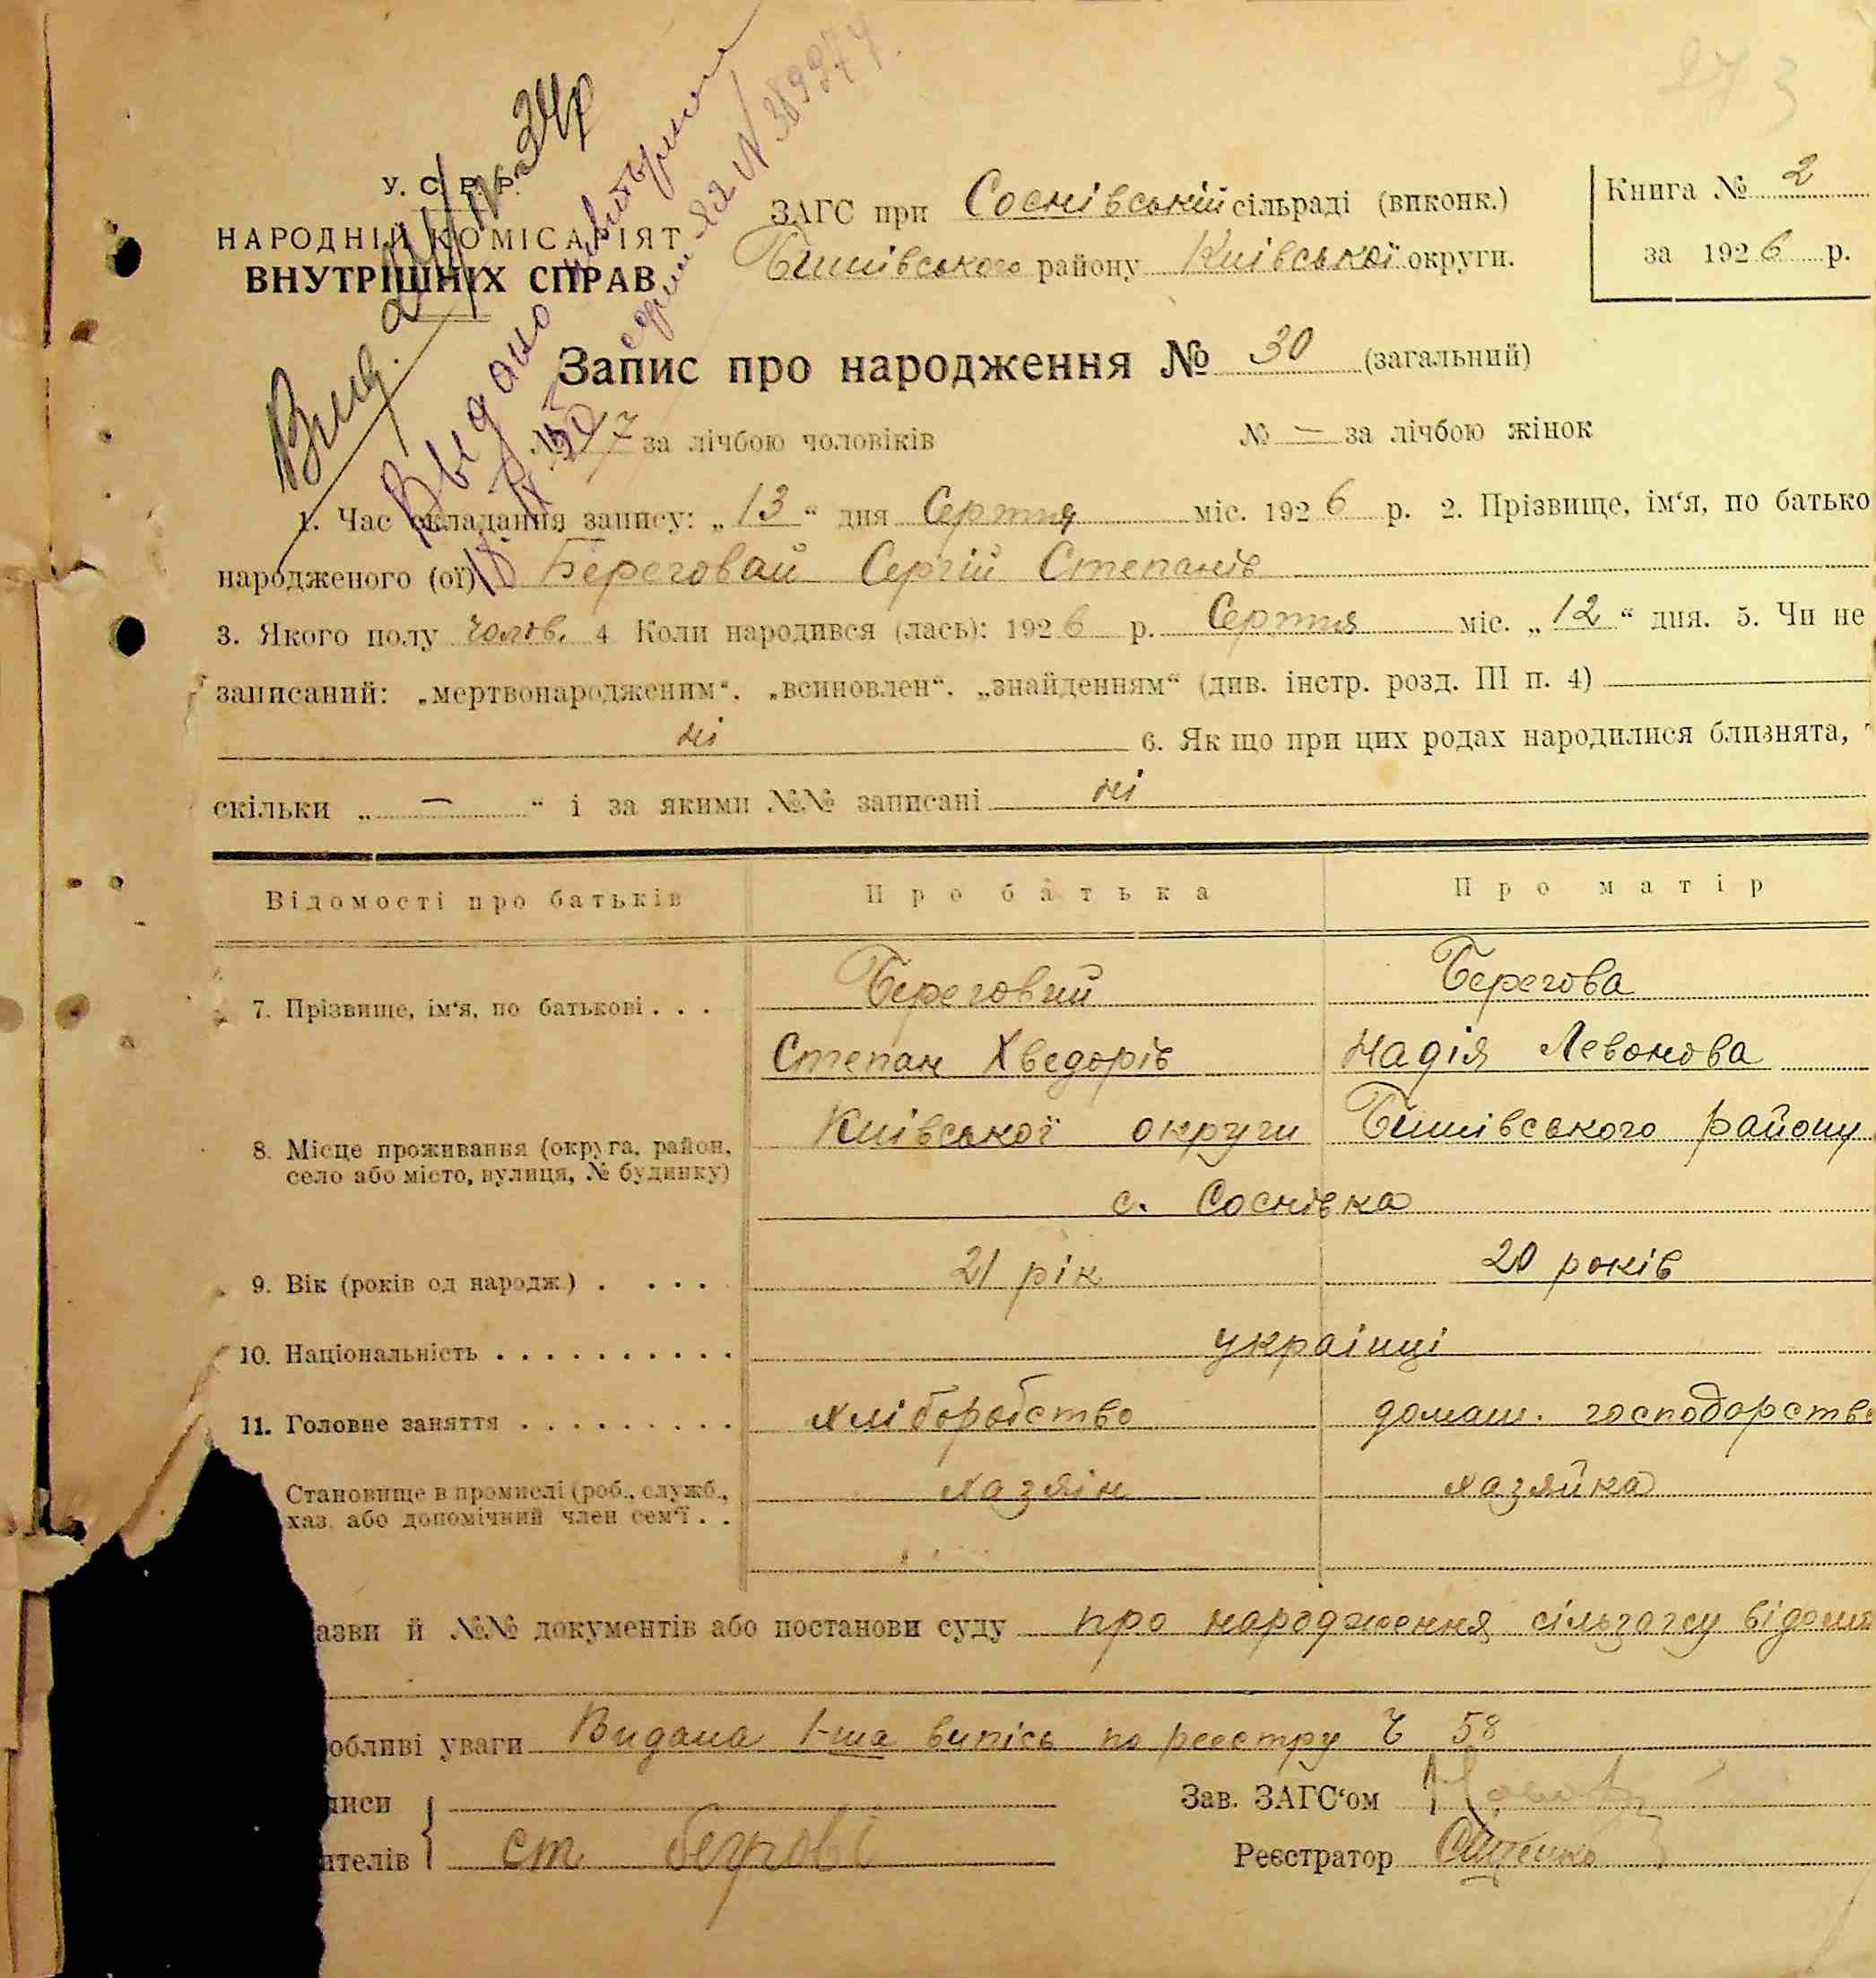 273
У. С. Р. Р.
НАРОДНІЙ КОМІСАРІЯТ
ВНУТРІШНІХ СПРАВ
Вид. 24р
Видано повторно
N 389974
ЗАГС при Соснівській сільраді (виконк.)
Бишівського району Київської округи.
Книга № 2
за 1926 р.
Запис про народження № 30 (загальний)
№ 17 за лічбою чоловіків № — за лічбою жінок
1. Час складання запису: „13“ дня Серпня міс. 1926 р. 2. Прізвище, ім'я, по батько
народженого (ої) Береговай Сергій Степанів
3. Якого полу чолов. 4 Коли народився (лась): 1926 р. Серпня міс. „12“ дня. 5. Чи не
записаний: „мертвонародженим“, „всиновлен“, „знайденням“ (див. інстр. розд. III п. 4)
ні 6. Як що при цих родах народилися близнята,
скільки „—“ і за якими №№ записані ні
Відомості про батьків Про батька Про матір
7. Прізвище, ім'я, по батькові . . . Береговий Берегова
Степан Хведорів Надія Левонова
8. Місце проживання (округа, район, село або місто, вулиця, № будинку) Київської округи Бишівського району
с. Соснівка
9. Вік (років од народж) . . . . 21 рік 20 років
10. Національність . . . . . . . . . . українці
11. Головне заняття . . . . . . . . . хліборобство домаш. господарство
Становище в промислі (роб., служб., хаз. або допомічний член сем'ї . . хазяін хазяйка
азви й №№ документів або постанови суду про народження сільзагсу відоми
обливі уваги Видана 1-ша випісь по реестру Ч 58
писи Зав. ЗАГС'ом
ителів ст Реєстратор